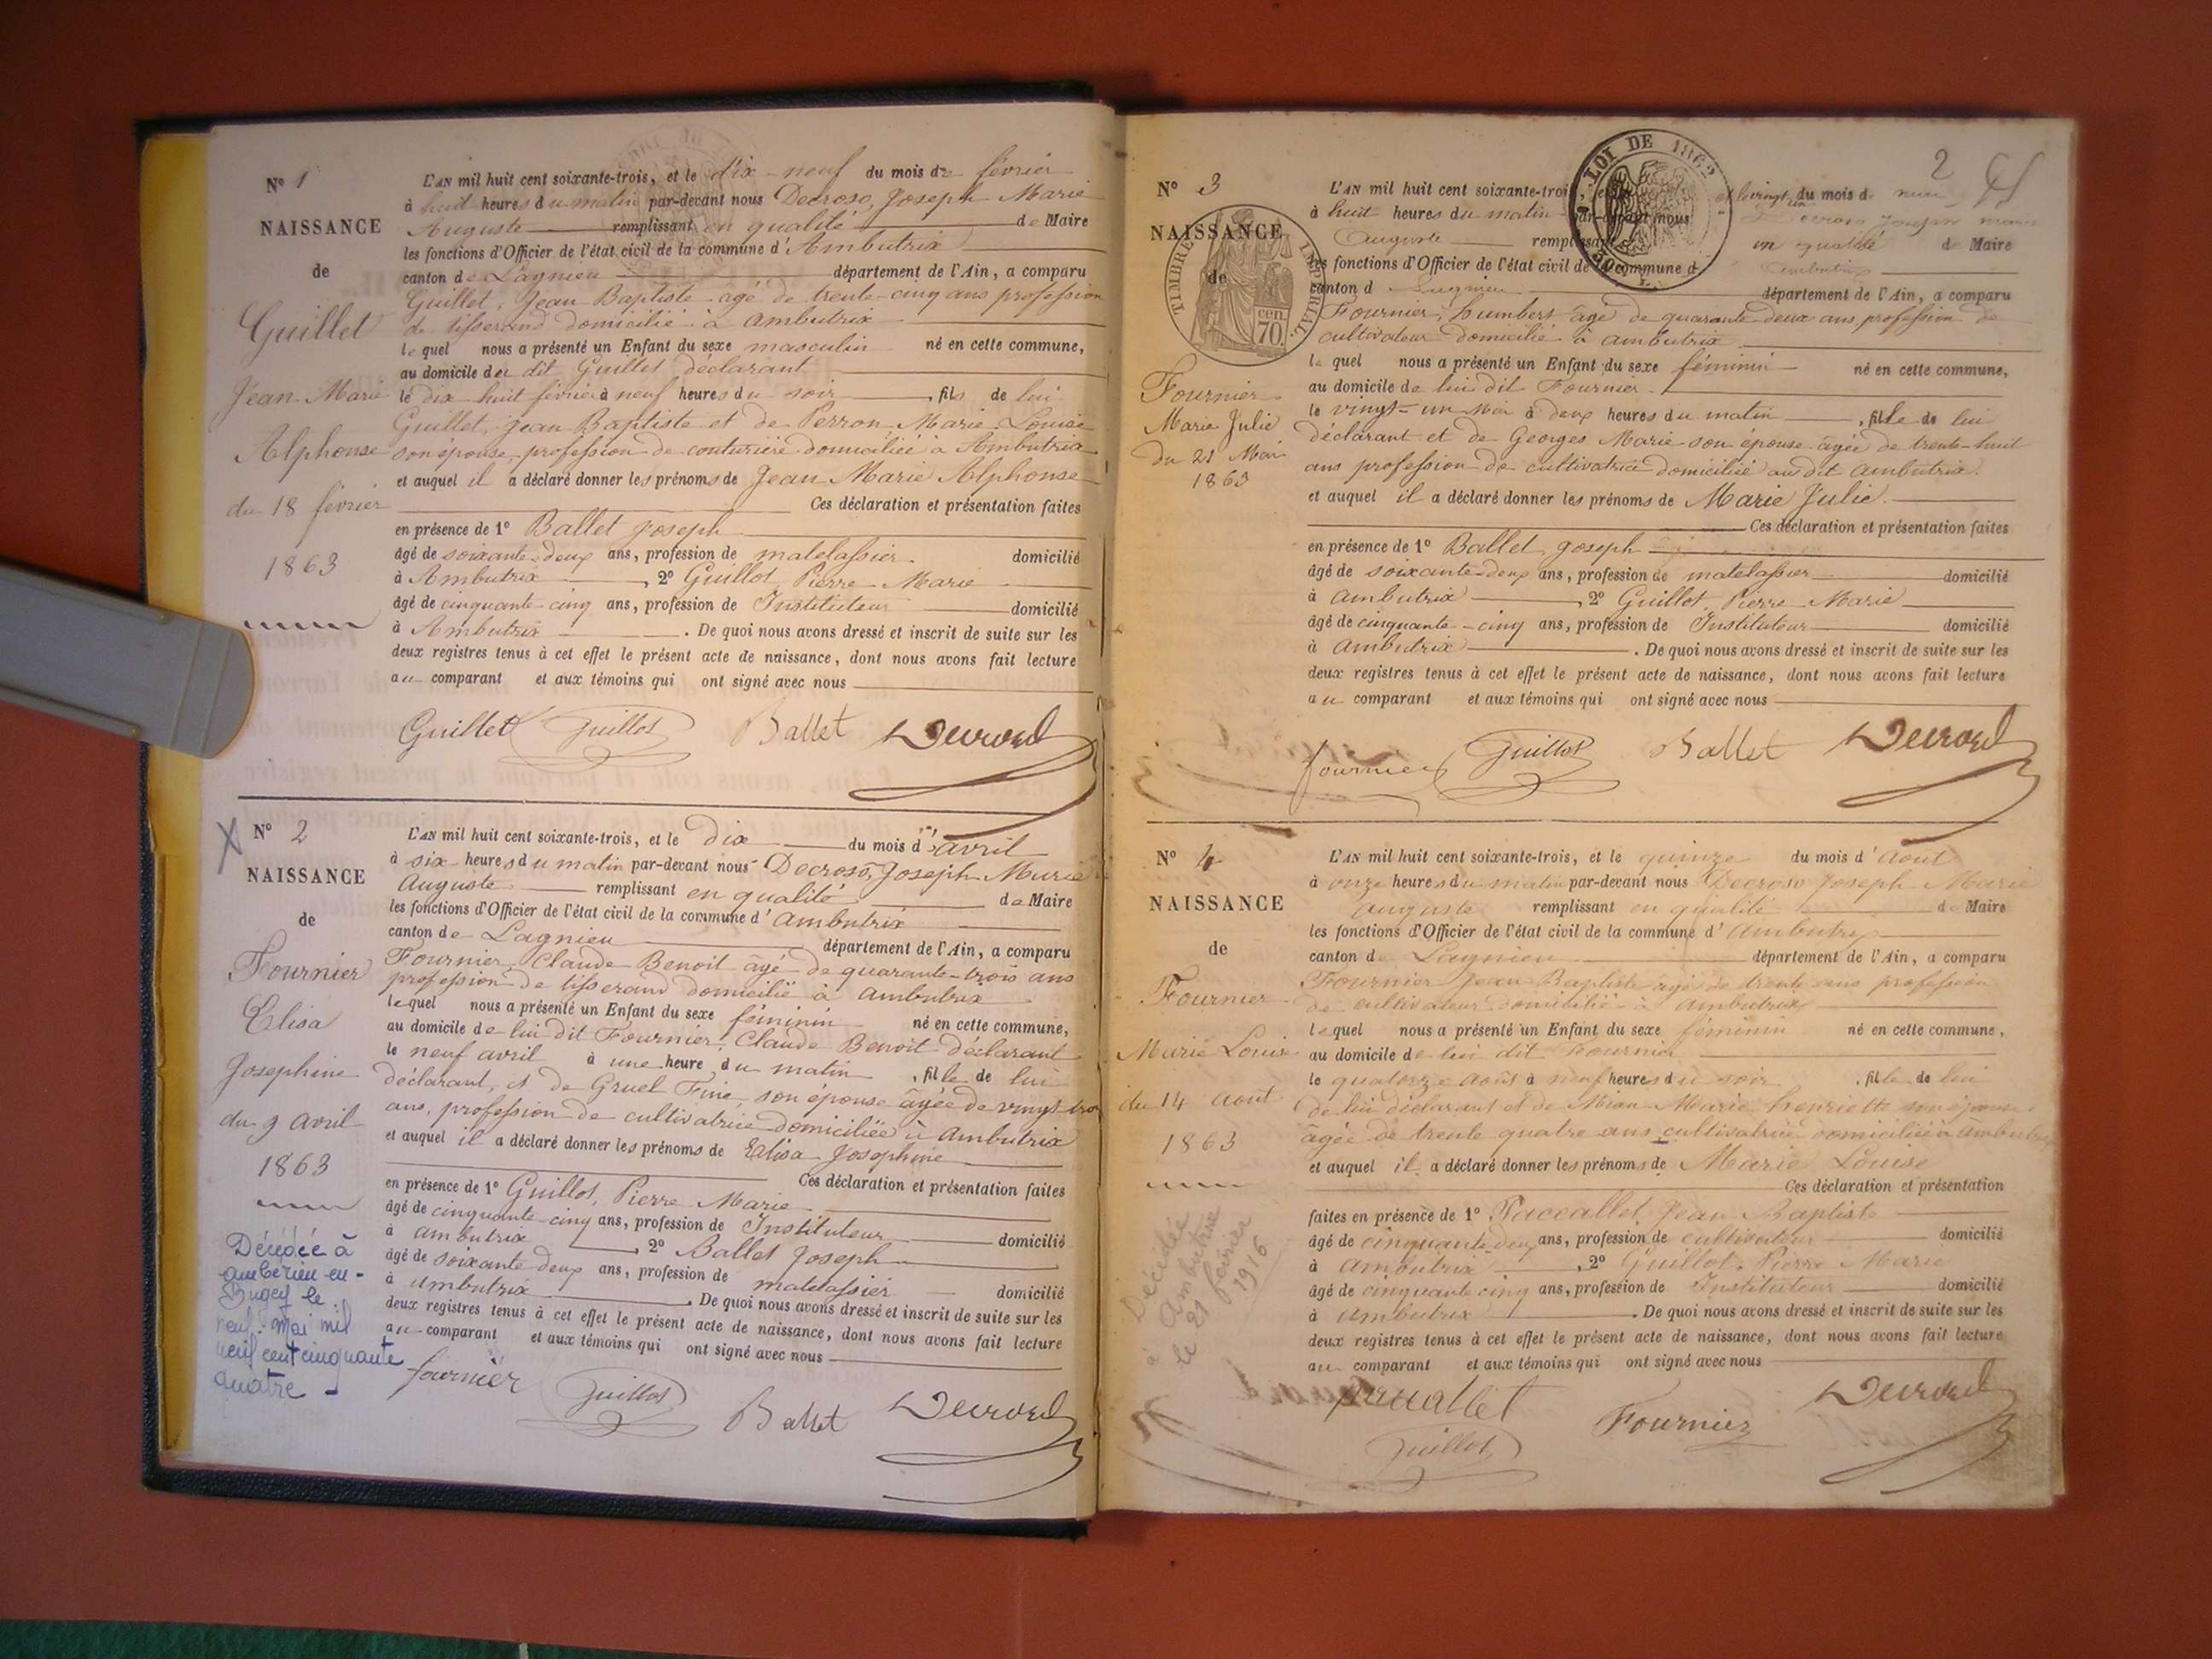 N° 1
NAISSANCE
de
Guillet
Jean Marie
Alphonse
du 18 février
1863
L'AN mil huit cent soixante-trois, et le dix-neuf du mois de février
à huit heures du matin par-devant nous Decroso, Joseph Marie
Auguste remplissant en qualité de Maire
les fonctions d'Officier de l'état civil de la commune d'Ambutrix
canton de Lagnieu département de l'Ain, a comparu
Guillet, Jean Baptiste agé de trente-cinq ans profession
de tisserand domicilié à ambutrix
lequel nous a présenté un Enfant du sexe masculin né en cette commune,
au domicile du dit Guillet déclarant
le dix huit février à neuf heures du soir, fils de lui
Guillet, Jean Baptiste et de Perron Marie Louise
son épouse, profession de couturière domiciliée à Ambutrix
et auquel il a déclaré donner les prénoms de Jean Marie Alphonse
Ces déclaration et présentation faites
en présence de 1° Ballet Joseph
âgé de soixante-deux ans, profession de matelassier domicilié
à Ambutrix, 2° Guillot, Pierre Marie
âgé de cinquante-cinq ans, profession de Instituteur domicilié
à Ambutrix. De quoi nous avons dressé et inscrit de suite sur les
deux registres tenus à cet effet le présent acte de naissance, dont nous avons fait lecture
au comparant et aux témoins qui ont signé avec nous
Guillet Guillot Ballet Decroso
N° 2
NAISSANCE
de
Fournier
Elisa
Josephine
du 9 avril
1863
Décédée à
ambérieu-en-
Bugey le
neuf mai mil
neuf cent cinquante
quatre
L'AN mil huit cent soixante-trois, et le dix du mois d'avril
à six heures du matin par-devant nous Decroso, Joseph Marie
Auguste remplissant en qualité de Maire
les fonctions d'Officier de l'état civil de la commune d'ambutrix
canton de Lagnieu département de l'Ain, a comparu
Fournier, Claude Benoit âgé de quarante-trois ans
profession de tisserand domicilié à ambutrix
lequel nous a présenté un Enfant du sexe féminin né en cette commune,
au domicile de lui dit Fournier, Claude Benoit déclarant
le neuf avril à une heure du matin, fille de lui
déclarant, et de Gruel Fine, son épouse âgée de vingt-
ans, profession de cultivatrice domiciliée à ambutrix
et auquel il a déclaré donner les prénoms de Elisa Josephine
Ces déclaration et présentation faites
en présence de 1° Guillot, Pierre Marie
âgé de cinquante-cinq ans, profession de Instituteur domicilié
à ambutrix, 2° Ballet Joseph
âgé de soixante deux ans, profession de matelassier domicilié
à ambutrix. De quoi nous avons dressé et inscrit de suite sur les
deux registres tenus à cet effet le présent acte de naissance, dont nous avons fait lecture
au comparant et aux témoins qui ont signé avec nous
fournier Guillot Ballet Decroso
2
N° 3
NAISSANCE
de
TIMBRE IMPERIAL
70 cen.
LOI DE 1862
Fournier
Marie Julie
du 21 Mai
1863
L'AN mil huit cent soixante-trois, et le vingt un du mois de mai
à huit heures du matin par-devant nous Decroso Joseph Marie
Auguste remplissant en qualité de Maire
les fonctions d'Officier de l'état civil de la commune d'Ambutrix
canton d Lagnieu département de l'Ain, a comparu
Fournier, humbert âgé de quarante-deux ans, profession de
cultivateur domicilié à ambutrix
lequel nous a présenté un Enfant du sexe féminin né en cette commune,
au domicile de lui dit Fournier.
le vingt-un Mai à deux heures du matin, fille de lui
déclarant et de Georges Marie son épouse âgée de trente-huit
ans profession de cultivatrice domiciliée au dit ambutrix.
et auquel il a déclaré donner les prénoms de Marie Julie.
Ces déclaration et présentation faites
en présence de 1° Ballet Joseph
âgé de soixante-deux ans, profession de matelassier domicilié
à ambutrix, 2° Guillot, Pierre Marie
âgé de cinquante-cinq ans, profession de Instituteur domicilié
à ambutrix. De quoi nous avons dressé et inscrit de suite sur les
deux registres tenus à cet effet le présent acte de naissance, dont nous avons fait lecture
au comparant et aux témoins qui ont signé avec nous
fournier Guillot Ballet Decroso
N° 4
NAISSANCE
de
Fournier
Marie Louise
du 14 aout
1863
Décédée
à Ambutrix
le 21 février
1916
L'AN mil huit cent soixante-trois, et le quinze du mois d'Aout
à onze heures du matin par-devant nous Decroso Joseph Marie
auguste remplissant en qualité de Maire
les fonctions d'Officier de l'état civil de la commune d'Ambutrix
canton de Lagnieu département de l'Ain, a comparu
Fournier Jean Baptiste agé de trente ans profession
de cultivateur domicilié à ambutrix
lequel nous a présenté un Enfant du sexe féminin né en cette commune,
au domicile de lui dit Fournier
le quatorze Août à neuf heures du soir, fille de lui
de lui déclarant et de Mian Marie henriette son épouse
âgée de trente quatre ans cultivatrice domiciliée à ambutrix
et auquel il a déclaré donner les prénoms de Marie Louise
Ces déclaration et présentation
faites en présence de 1° Paccallet, Jean Baptiste
âgé de cinquante-deux ans, profession de cultivateur domicilié
à ambutrix, 2° Guillot Pierre Marie
âgé de cinquante cinq ans, profession de Instituteur domicilié
à ambutrix. De quoi nous avons dressé et inscrit de suite sur les
deux registres tenus à cet effet le présent acte de naissance, dont nous avons fait lecture
au comparant et aux témoins qui ont signé avec nous
Paccallet Fournier Decroso
Guillot